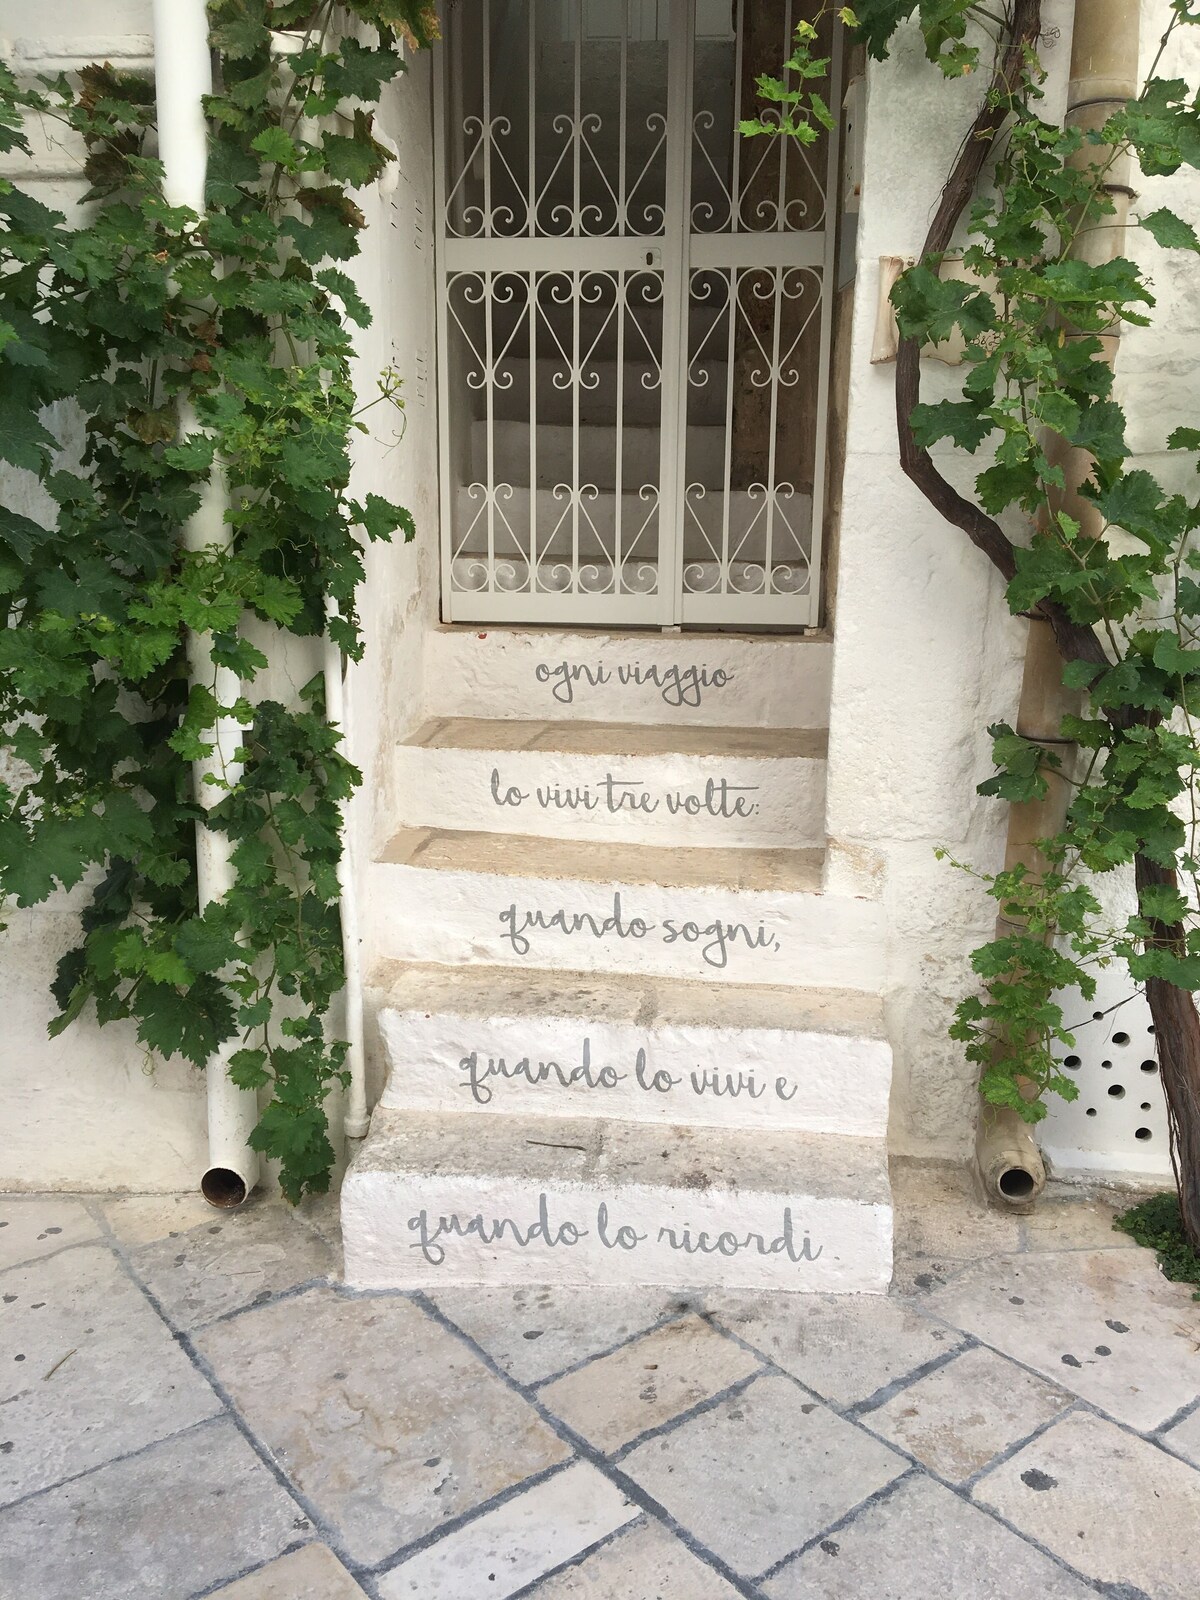 ogni viaggio
lo vivi tre volte:
quando sogni,
quando lo vivi e
quando lo ricordi.